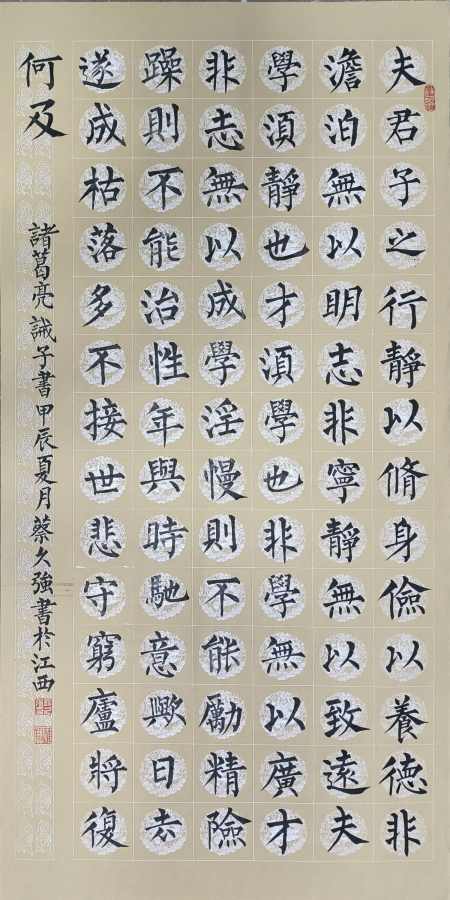 夫君子之行靜以脩身儉以養德非
澹泊無以明志非寧靜無以致遠夫
學湏靜也才湏學也非學無以廣才
非志無以成學淫慢則不能勵精險
躁則不能治性年與時馳意歟日去
遂成枯落多不接世悲守窮廬將復
何及
諸葛亮誡子書甲辰夏月蔡久強書於江西